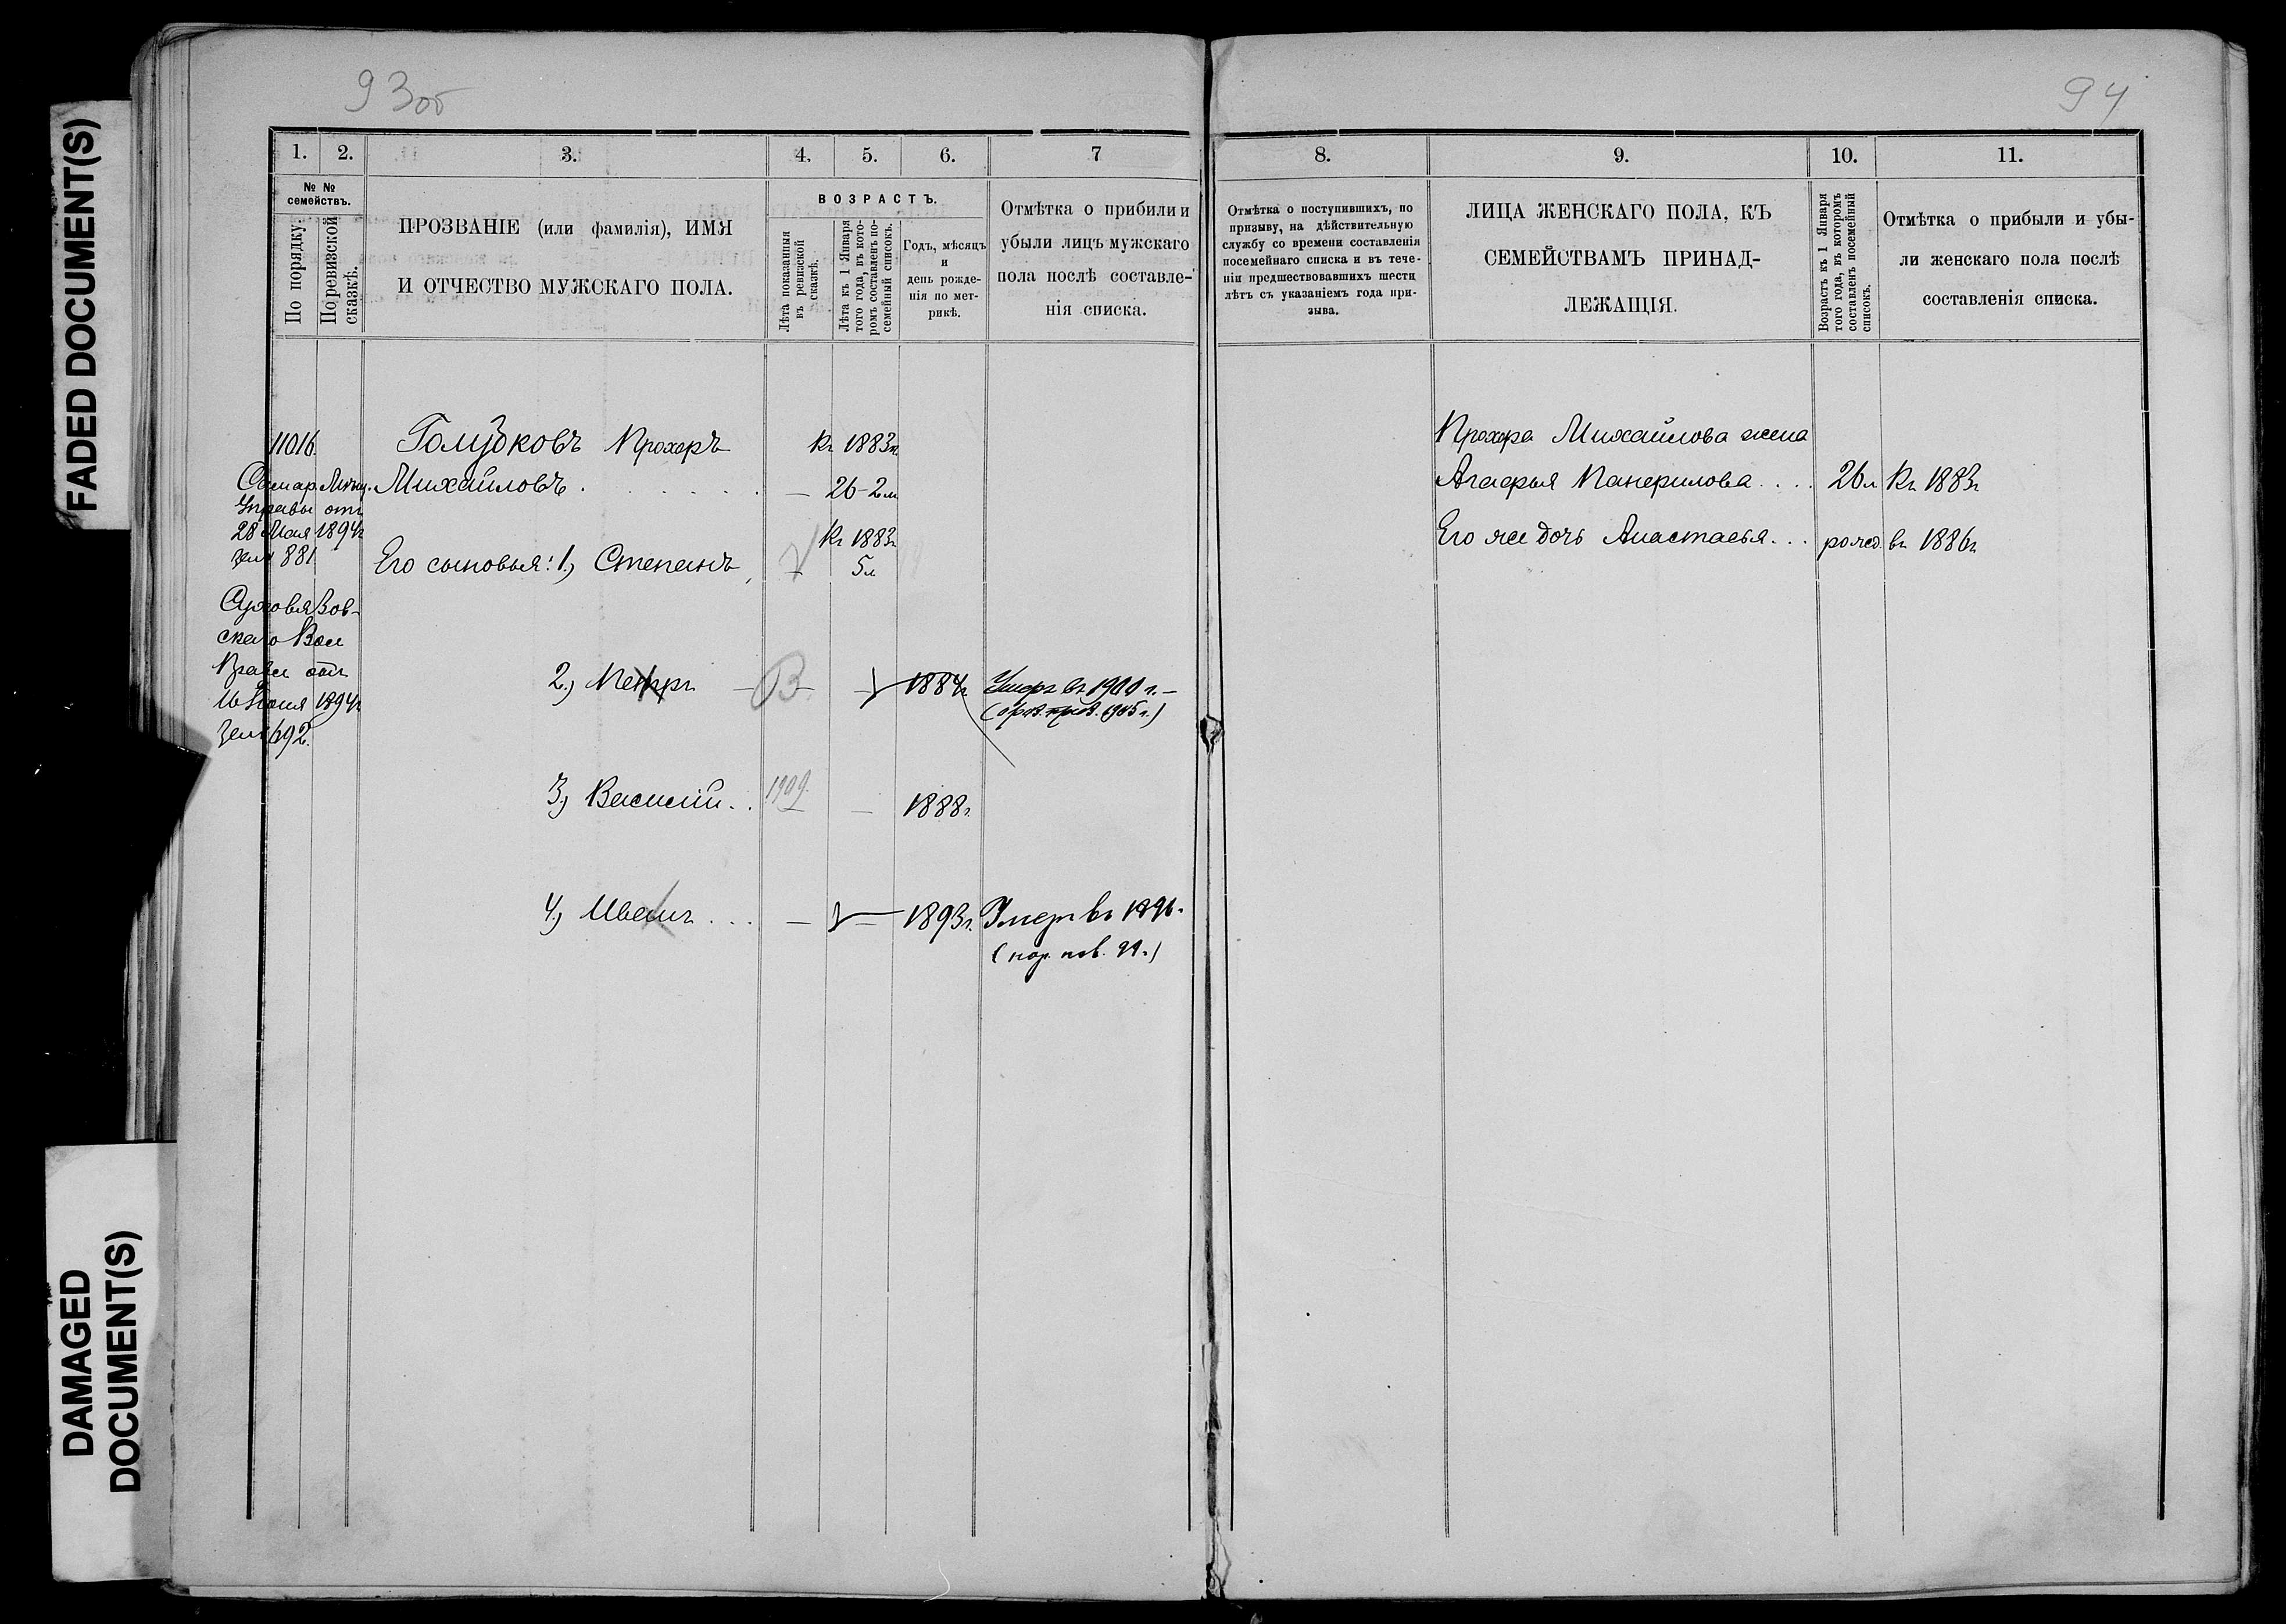 FADED DOCUMENT(S)
DAMAGED
DOCUMENT(S)
93об
1. 2. 3. 4. 5. 6. 7
№ №
семействъ.
По порядку.
По ревизской
сказкѣ.
ПРОЗВАНІЕ (или фамилія), ИМЯ
И ОТЧЕСТВО МУЖСКАГО ПОЛА.
ВОЗРАСТЪ.
Лѣта показанныя
въ ревизской
сказкѣ.
Лѣта къ 1 Января
того года, въ кото-
ромъ составленъ по-
семейный списокъ.
Годъ, мѣсяцъ
и
день рожде-
нія по мет-
рикѣ.
Отмѣтка о прибыли и
убыли лицъ мужскаго
пола послѣ составле-
нія списка.
11016.
Самар. Мѣщ.
Управы отъ
28 Мая 1894г
за № 881
скаго Вол
Правл отъ
1894г
за № 692.
Голубковъ Прохоръ
Михайловъ . . . . . . . — 26-2м
Къ 1883г.
Его сыновья: 1.) Степанъ
Къ 1883г
5л
2.) Петръ — В — 1884г. Умеръ въ 1900 г. —
1905 г.)
3.) Василій . . 1909. — 1888г.
4.) Иванъ . . . — — 1893г. Умеръ въ 1896.
94
8. 9. 10. 11.
Отмѣтка о поступившихъ, по
призыву, на дѣйствительную
службу со времени составленія
посемейнаго списка и въ тече-
ніи предшествовавшихъ шести
лѣтъ съ указаніемъ года при-
зыва.
ЛИЦА ЖЕНСКАГО ПОЛА, КЪ
СЕМЕЙСТВАМЪ ПРИНАД-
ЛЕЖАЩІЯ.
Возрастъ къ 1 Января
того года, въ которомъ
составленъ посемейный
списокъ.
Отмѣтка о прибыли и убы-
ли женскаго пола послѣ
составленія списка.
Прохора Михайлова жена
Агафья Панфилова . . . . 26л Къ 1883г
Его же дочь Анастасья . . . рожд. въ 1886г